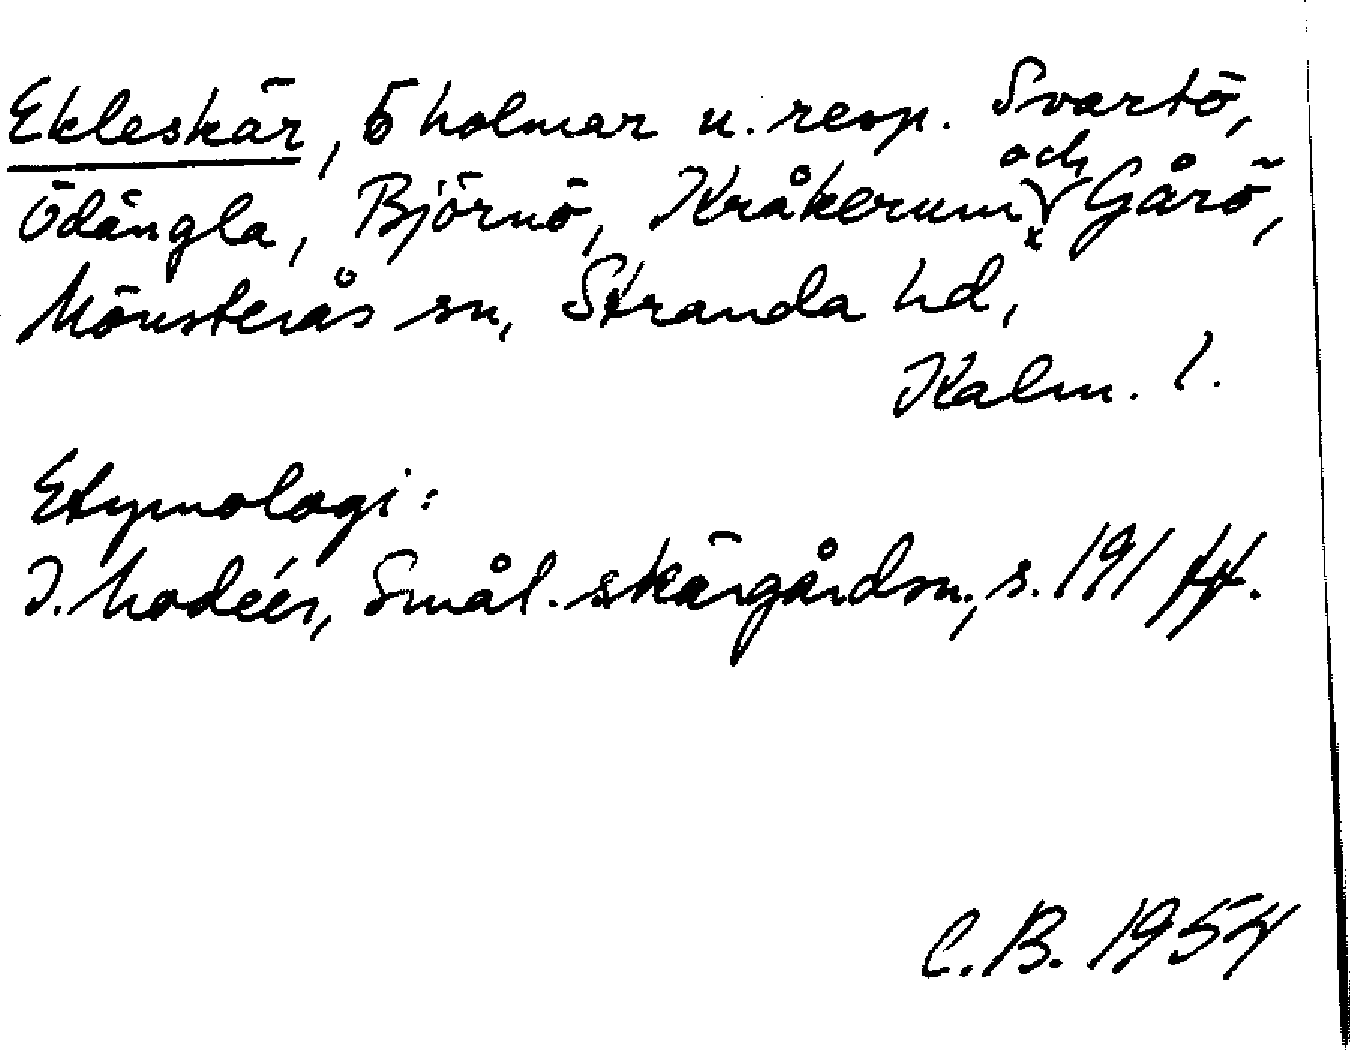 Ekleskär, 5 holmar u. resp. Svartö,
Ödängla, Björnö, Kråkerum och Gårö,
Mönsterås sn, Stranda hd,
Kalm. l.
Etymologi:
I. Modéer, Smål. skärgårdsn., s. 191 ff.
C. B. 1954